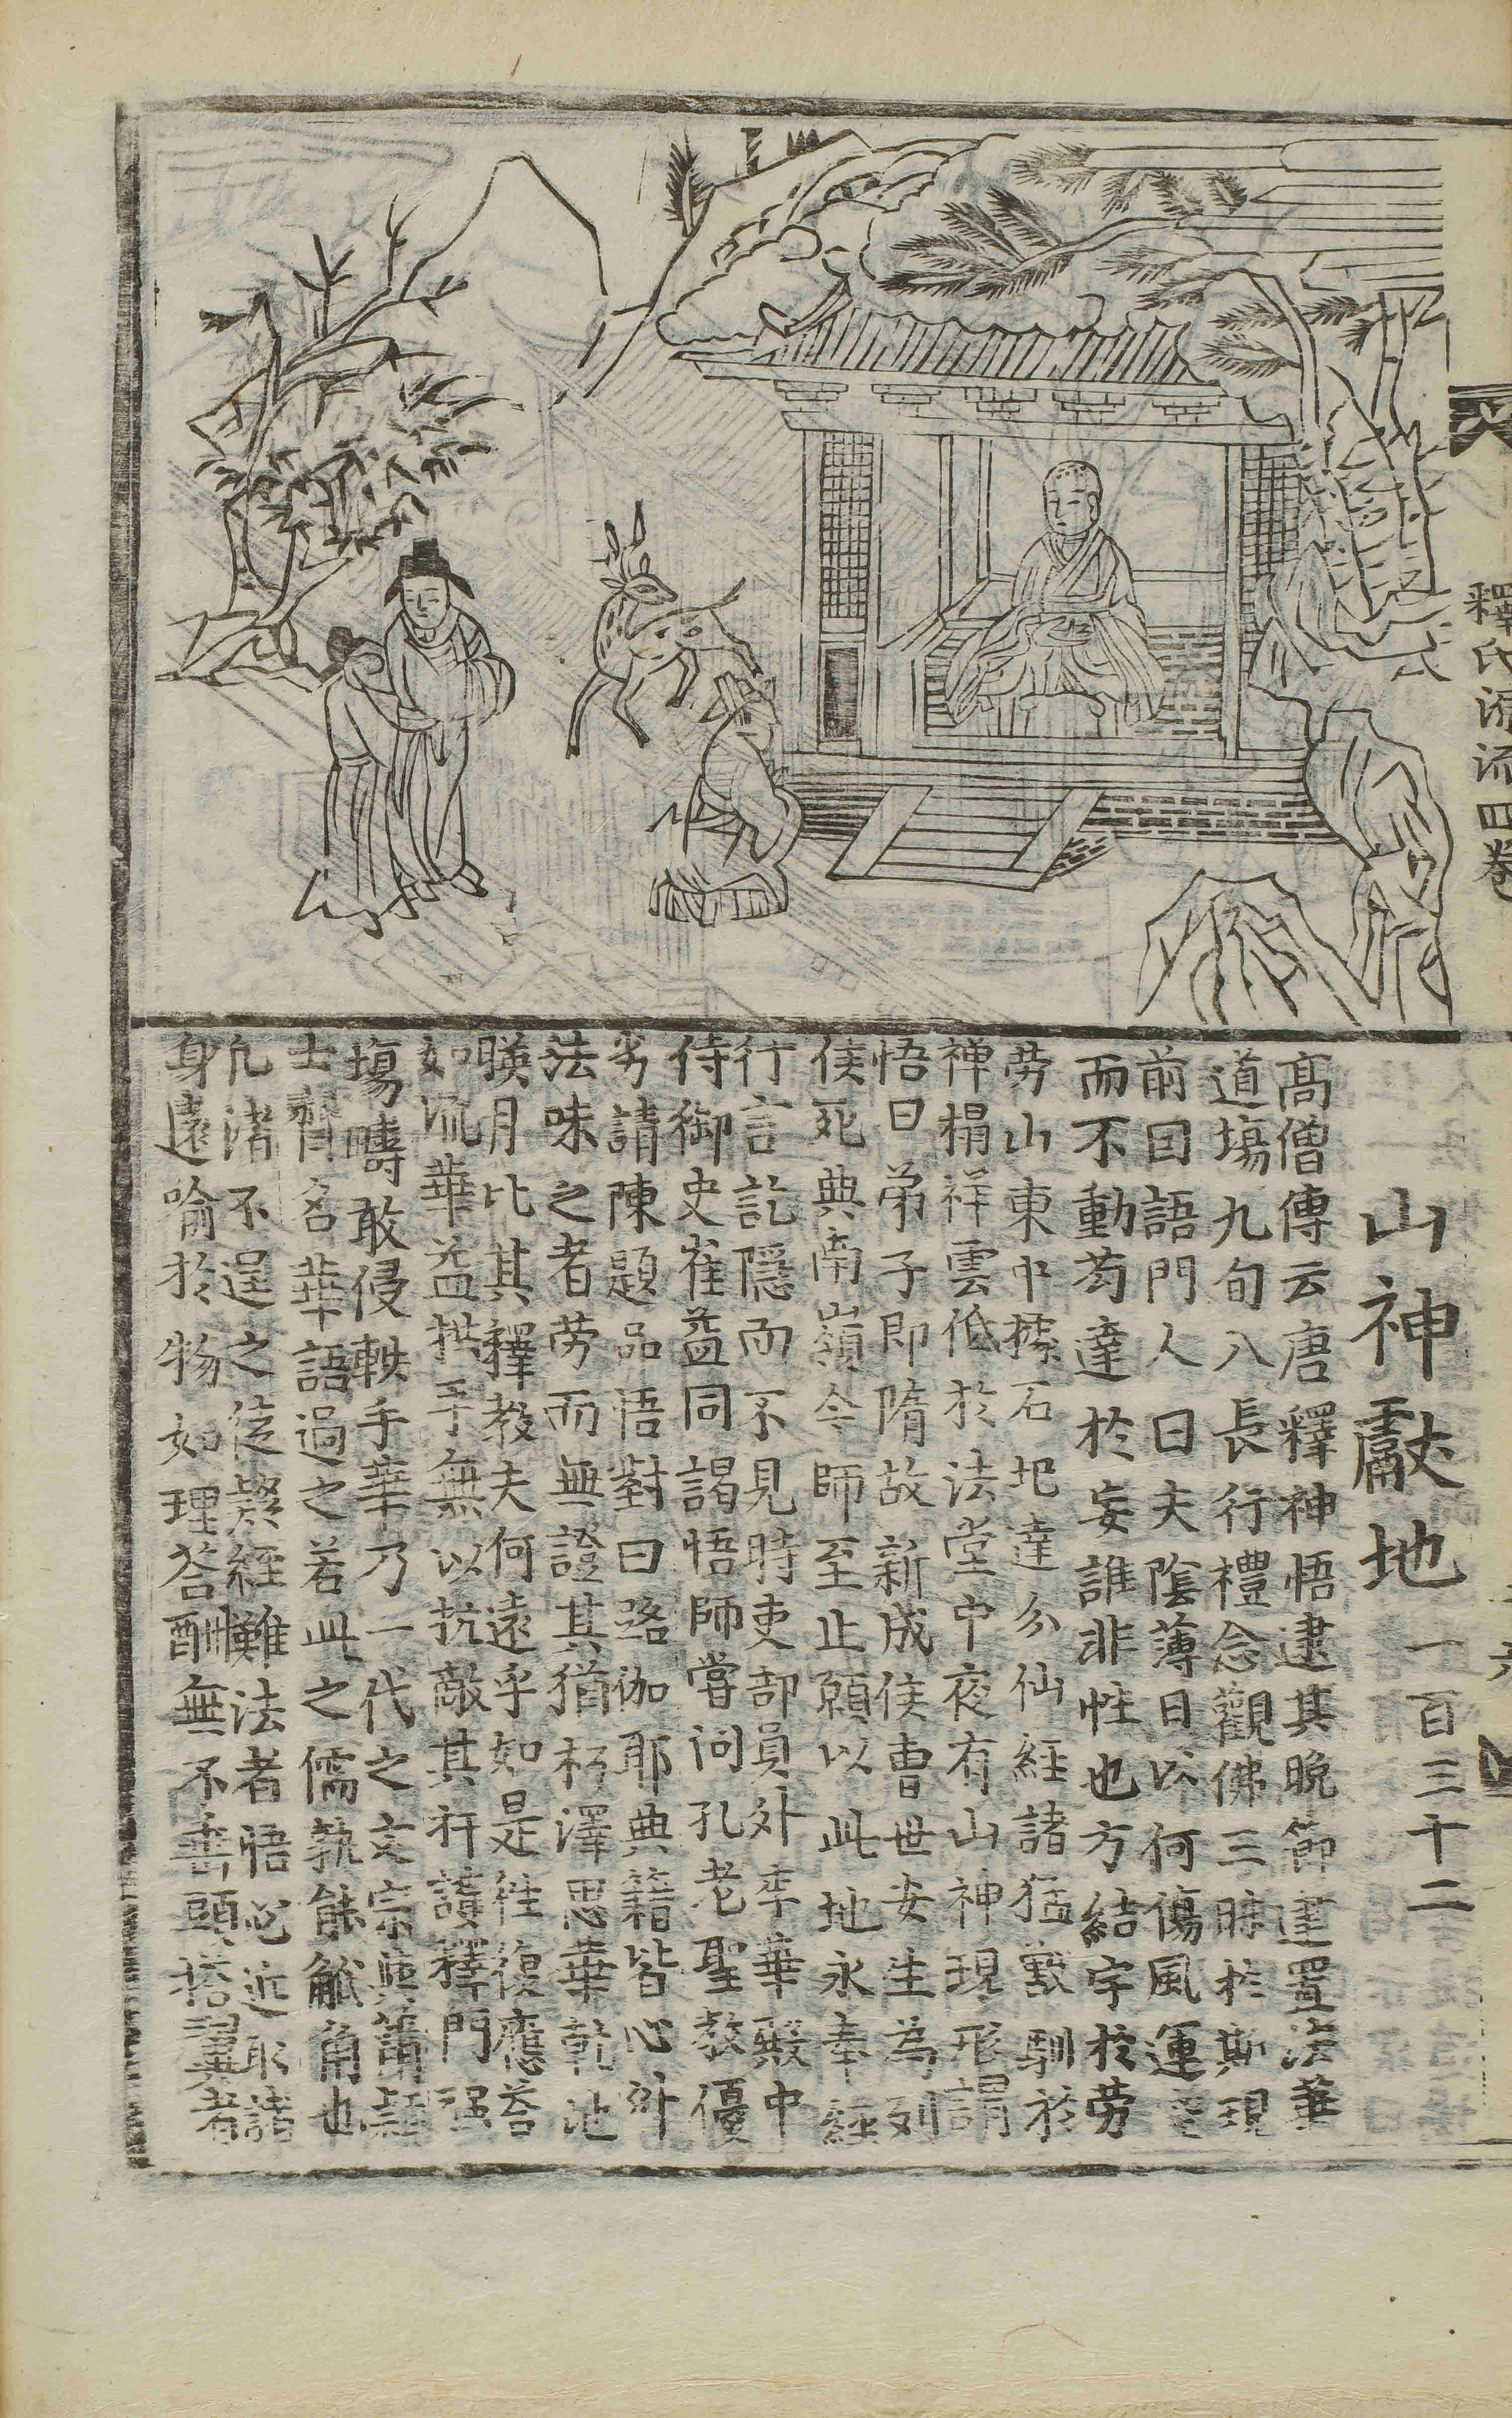 釋氏源流四卷
山神獻地 一百三十二
高僧傳云唐釋神悟逮其晚節建置法華
道場九旬入長行禮念觀佛三昧於斯現
前因語門人曰夫陰薄日以何傷風運空
而不動苟達於妄誰非性也方結宇於勞
勞山東中據石圯達公仙經諸猛獸馴於
禪榻祥雲低於法堂中夜有山神現形謂
悟曰弟子即隋故新成侯曹世安生為列
侯死典南嶺今師至止願以此地永奉經
行言訖隱而不見時吏部員外李華殿中
侍御史崔益同謁悟師嘗問孔老聖教優
劣請陳題品悟對曰路伽耶典籍皆心外
法味之者勞而無證其猶朽澤思華乾池
映月比其釋教夫何遠乎如是往復應答
如流華益拱手無以抗敵其扞護釋門強
場疇敢侵軼手華乃一代之文宗與蕭穎
士齊名華語過之若此之儒孰能觸角也
凡諸不逞之徒疑經難法者悟必近取諸
身遠喻於物如理答酬無不垂頭搭翼者